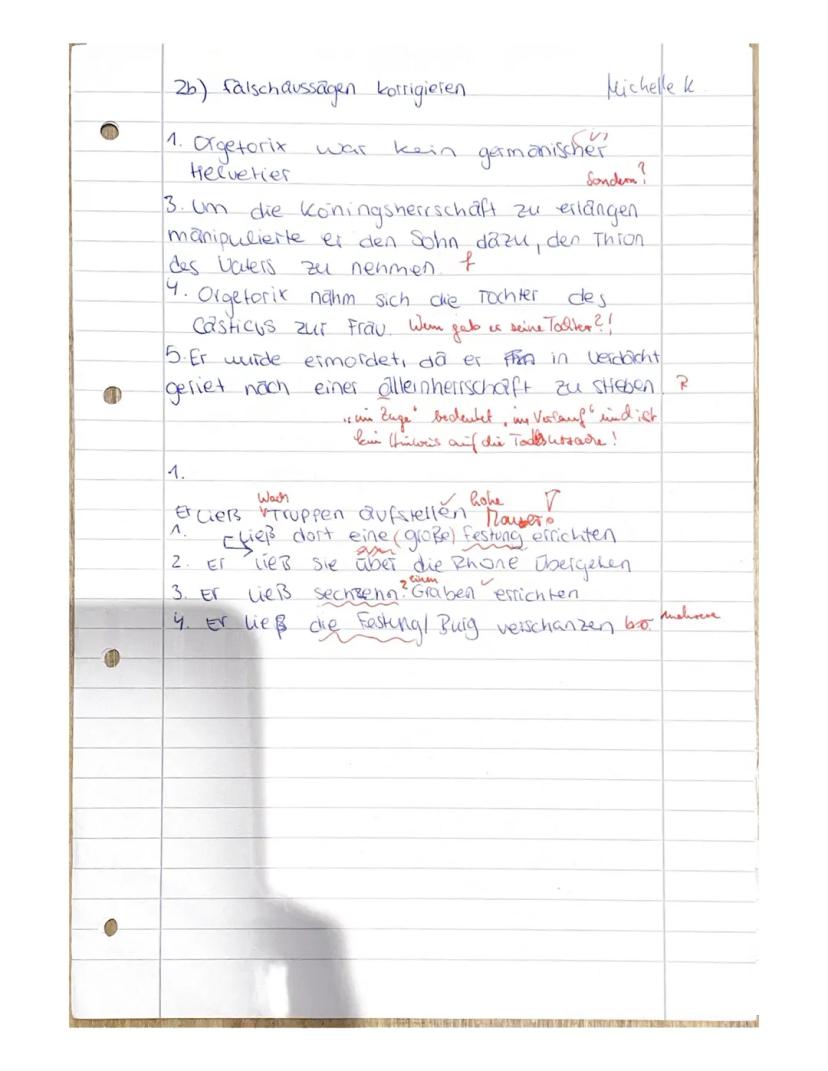 2b) Falschaussagen korrigieren Michelle K
1. Orgetorix war kein germanischer (√)
Helvetier Sondern?
3. Um die Köningsherrschaft zu erlangen
manipulierte er den Sohn dazu, den Thron
des Vaters zu nehmen. f
4. Orgetorix nahm sich die Tochter des
Casticus zur Frau. Wem gab er seine Tochter?!
5. Er wurde ermordet, da er in Verdacht
geriet nach einer alleinherrschaft zu stieben R
"im Zuge" bedeutet "im Verlauf" und ist
kein Hinweis auf die Todesursache!
1.
Wach hohe
Er Ließ Truppen aufstellen ✓ Mauer
1. Ließ dort eine (große) Festung errichten
2. Er ließ sie über die Rhone übergehen
einen
3. Er ließ sechzehn ? Graben ✓ errichten
4. Er ließ die Festung/ Burg verschanzen mehrere